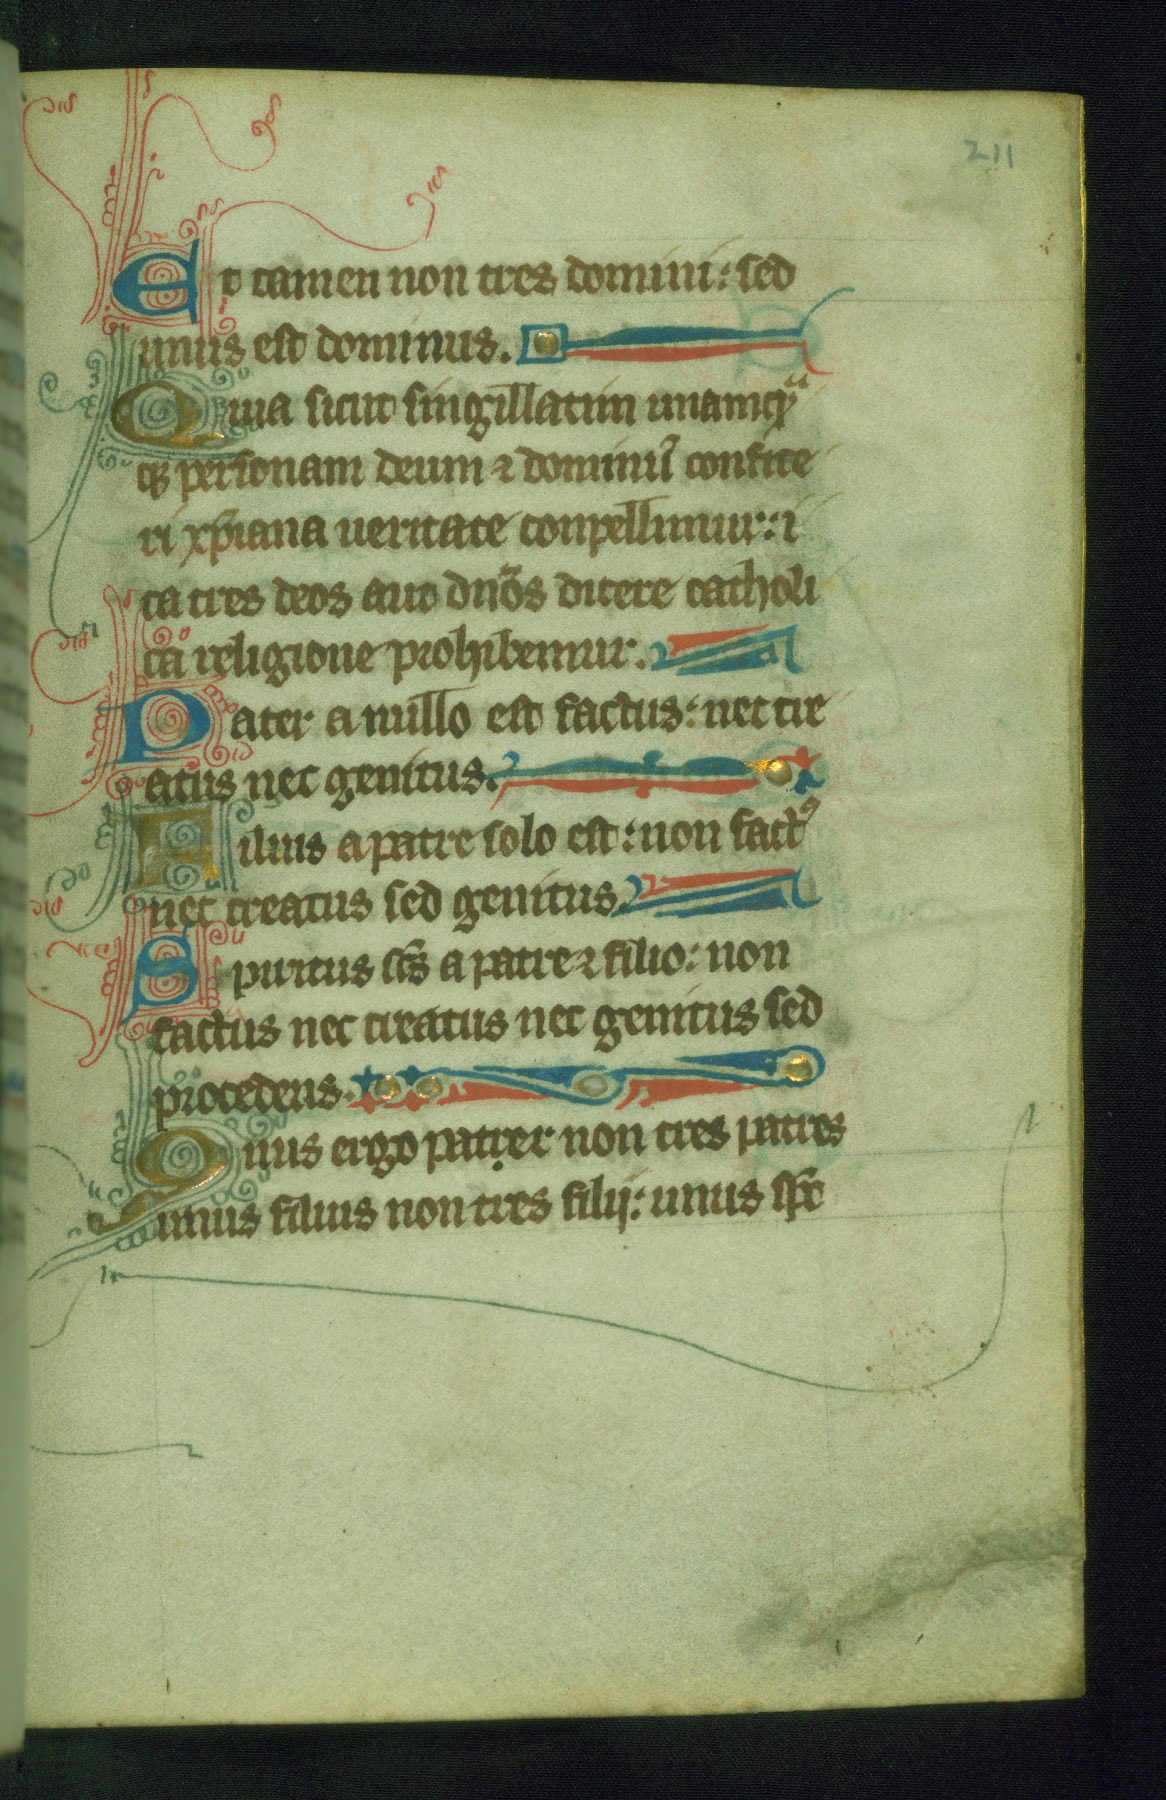 211
Et tamen non tres domini: sed
unus est dominus.
Quia sicut singillatim unamqͣ
qꝫ personam deum ⁊ dominū confite
ri xp̄iana ueritate conpellimur: i
ta tres deos aut dn̄os dicere catholi
ca religione prohibemur.
Pater a nullo est factus: nec cre
atus nec genitus.
Filius a patre solo est: non factꝰ
nec creatus sed genitus.
Spiritus sc̄s a patre ⁊ filio: non
factus nec creatus nec genitus sed
procedens.
Unus ergo patrer non tres patres
unus filius non tres filij: unus sp̄c